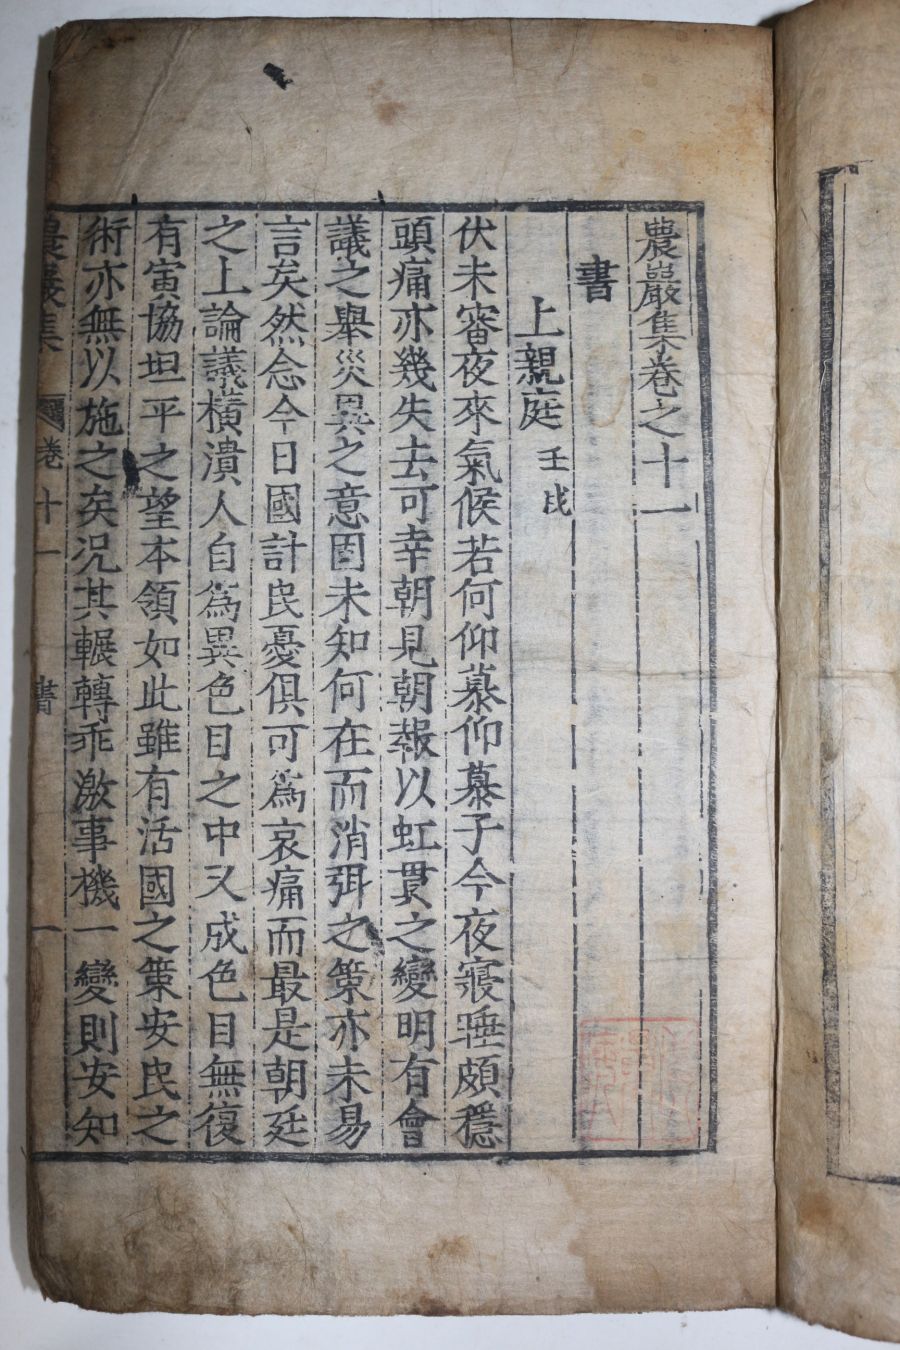 農巖集卷之十一
書
上親庭 壬戌
伏未審夜來氣候若何仰慕仰慕子今夜寢睡頗穩
頭痛亦幾失去可幸朝見朝報以虹貫之變明有會
議之舉災異之意固未知何在而消弭之策亦未易
言矣然念今日國計民憂俱可爲哀痛而最是朝廷
之上論議橫潰人自爲異色目之中又成色目無復
有寅協坦平之望本領如此雖有活國之策安民之
術亦無以施之矣況其輾轉乖激事機一變則安知
農巖集 卷十一 書 一